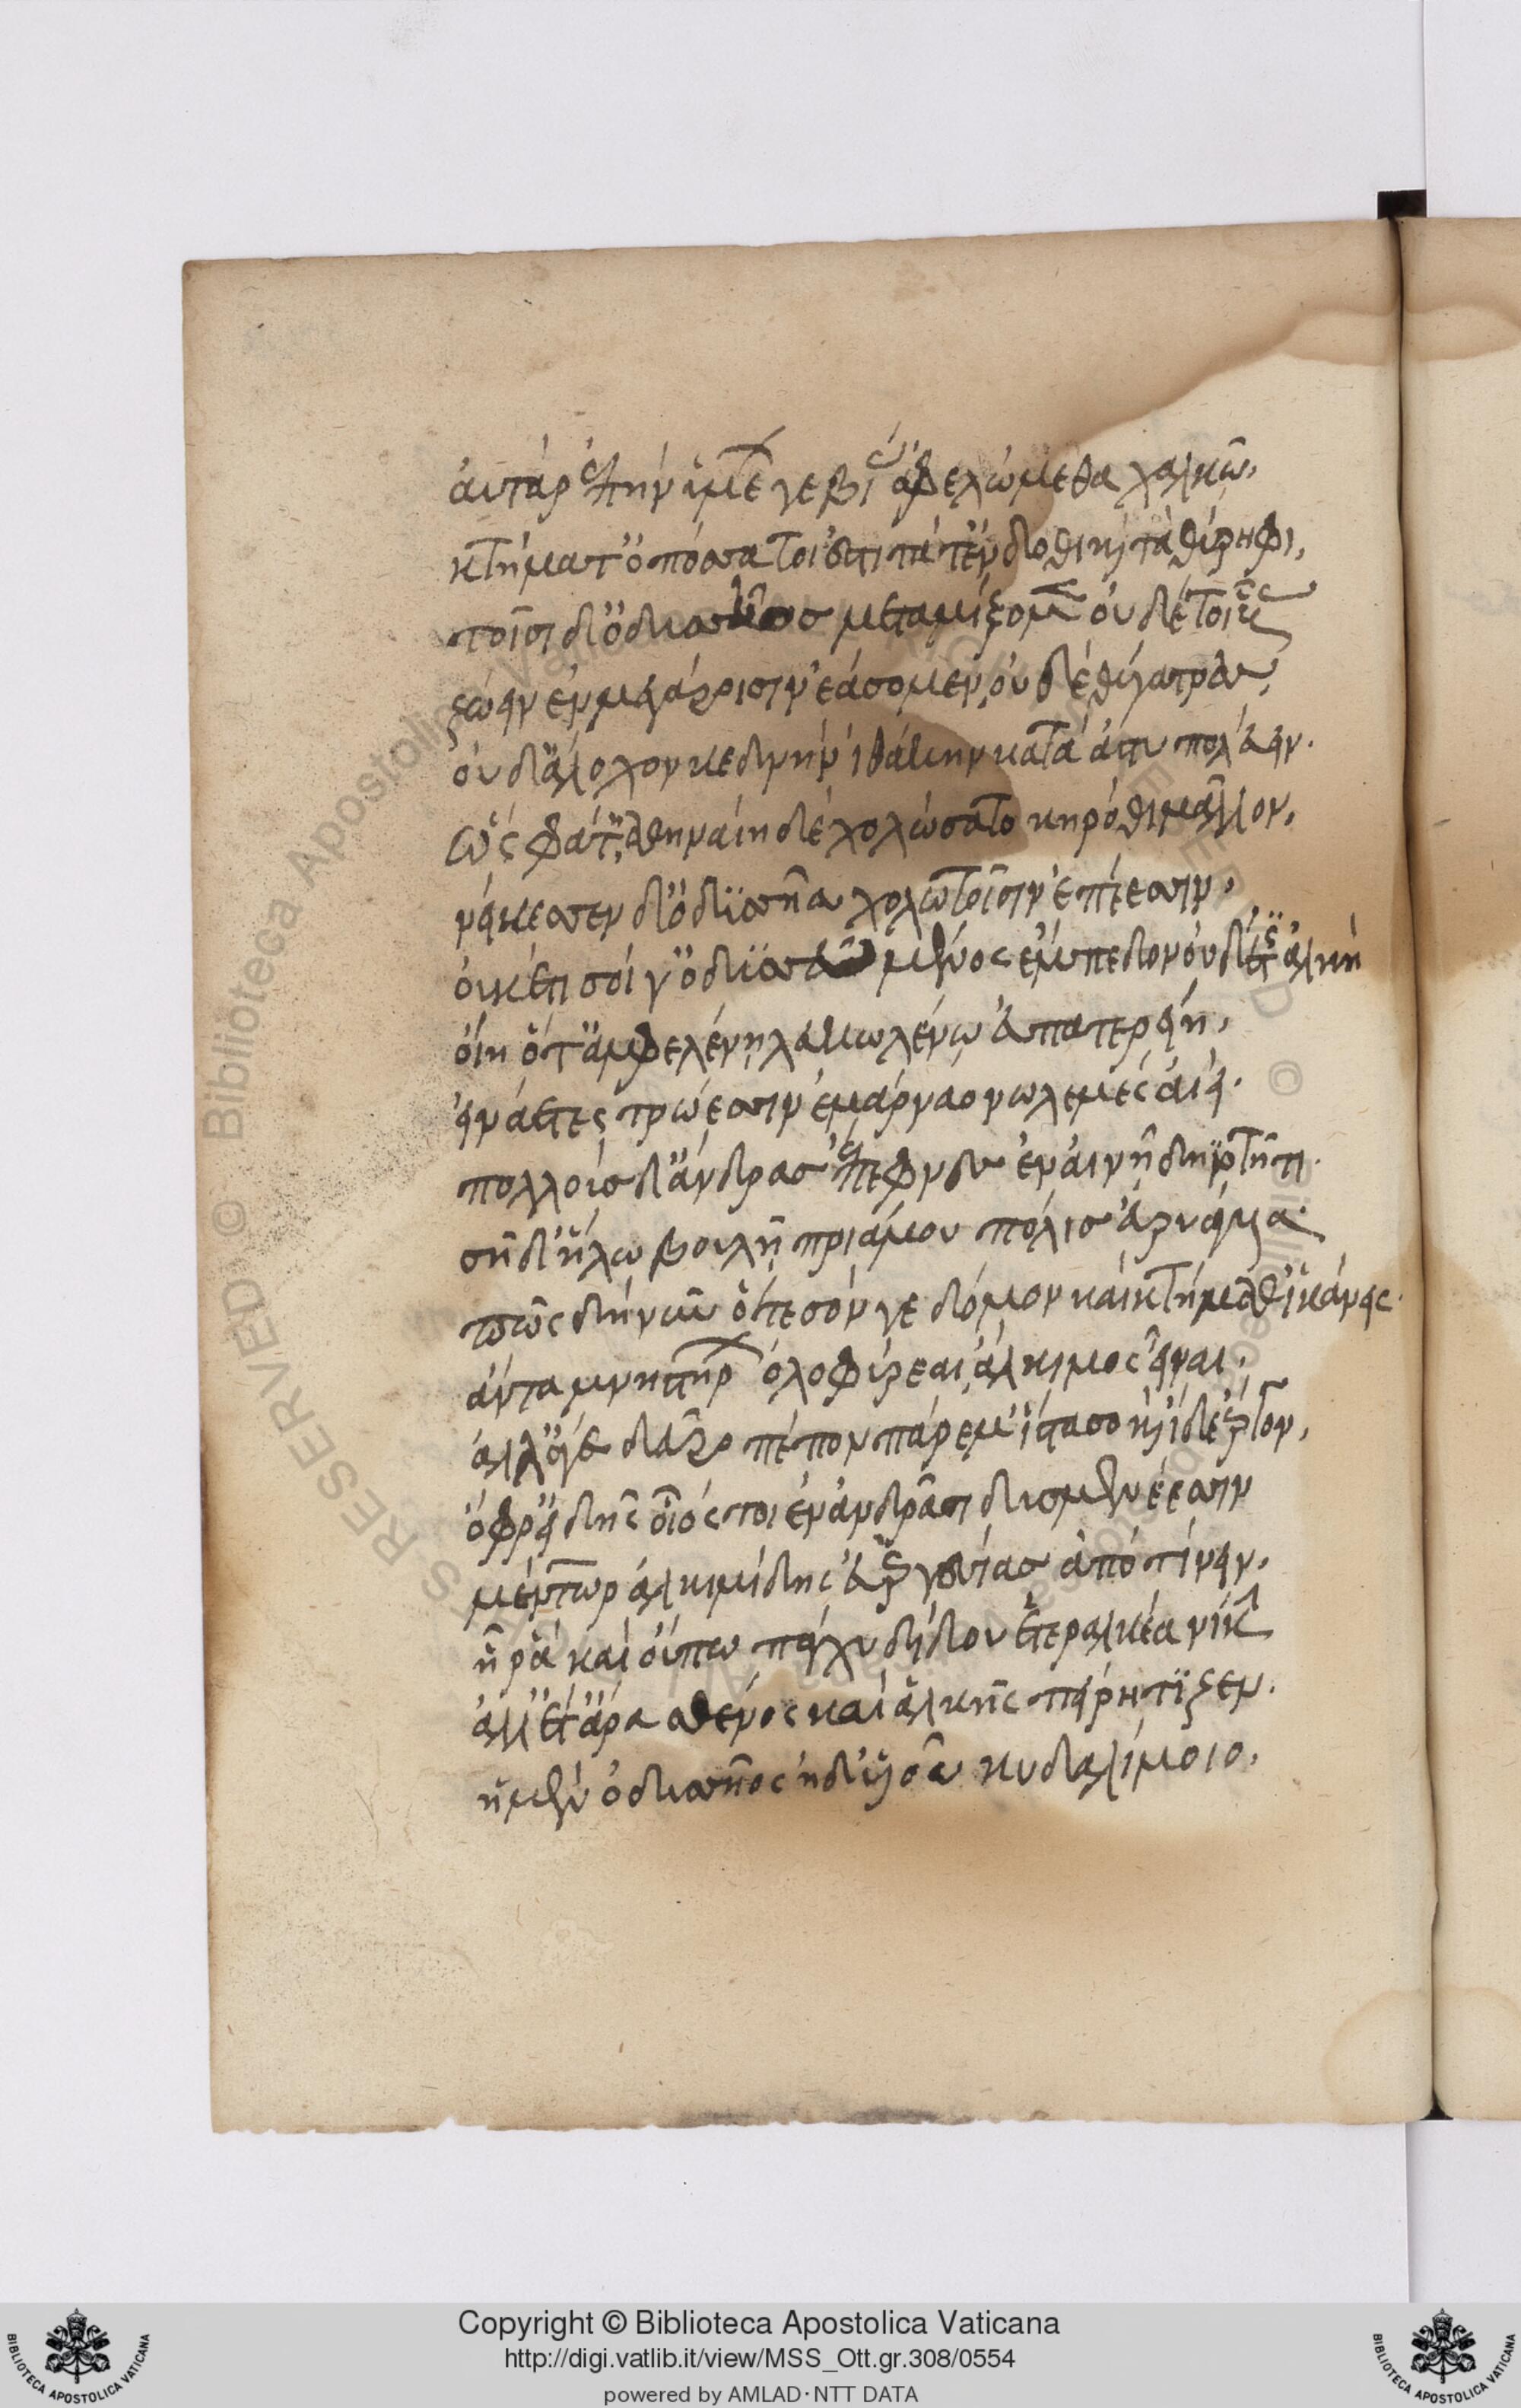 αὐτὰρ ἐπὴν ὑμέων γε βίας ἀφελώμεθα χαλκῶ,
κτήμαθ' ὁπόσσα τοί ἐστι τά τ' ἔνδοθι καὶ τὰ θύρηφι,
τοῖσι δ' Ὀδυσσῆος μεταμίξομεν οὐδέ τοι υἷας
ζώειν ἐν μεγάροισιν ἐάσομεν, οὐδὲ θύγατρας,
οὐδ' ἄλοχον κεδνὴν ἰθάκης κατὰ ἄστυ πολεύειν.
ὣς φάτ', ἀθηναίη δὲ χολώσατο κηρόθι μᾶλλον,
νείκεσσεν δ' ὀδυσσῆα χολωτοῖσιν ἐπέεσσιν,
οὐκέτι σοί γ' ὀδυσεῦ μένος ἔμπεδον οὐδέ τις ἀλκή
οἵη ὅτ' ἀμφ' ἑλένῃ λευκωλένω εὐπατερείη,
εἰνάετες τρώεσσιν ἐμάρναο νωλεμὲς αἰεί.
πολλοὺς δ' ἄνδρας ἔπεφνες ἐν αἰνῆ δηϊοτῆτι.
σῆ δ' ἥλω βουλῆ πριάμου πόλις εὐρυάγυια.
πῶς δὴ νῦν ὅτε σόν γε δόμον καὶ κτήμαθ' ἱκάνεις.
ἄντα μνηστήρων ὀλοφύρεαι ἄλκιμος εἶναι,
ἀλλ' ἄγε δεῦρο πέπον παρ' ἐμ' ἵστασο καὶ ἴδε ἔργον,
ὄφρ' εἰδῆς οἷός τοι ἐν ἀνδράσι δυσμενέεσσιν
μέντωρ ἀλκιμίδης εὐεργεσίας ἀποτίνειν,
ἦ ῥα καὶ οὔπω πάγχυ δίδου ἑτεραλκέα νίκην
ἀλλ' ἔτ' ἄρα σθένος καὶ ἀλκῆς πειρήτιζεν.
ἠμὲν ὀδυσσῆος ἠδ' υἱοῦ κυδαλίμοιο,
Copyright © Biblioteca Apostolica Vaticana
http://digi.vatlib.it/view/MSS_Ott.gr.308/0554
powered by AMLAD·NTT DATA